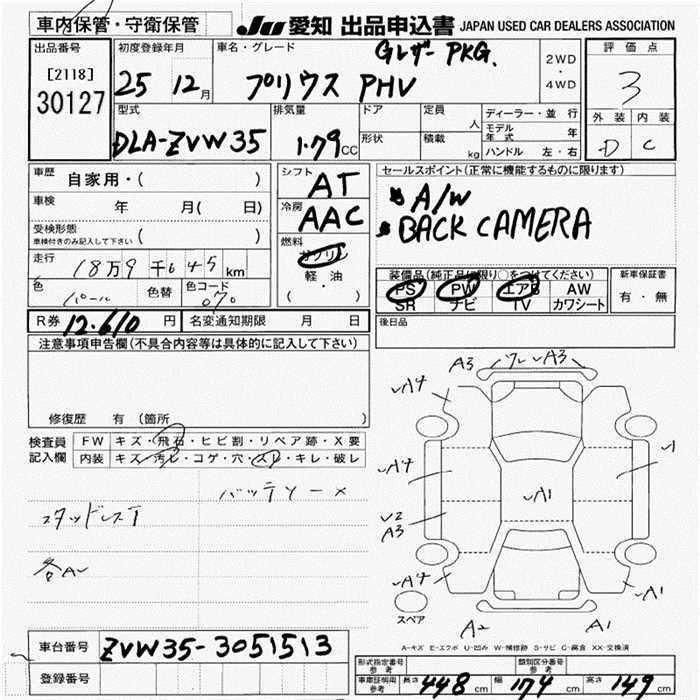 車内保管・守衛保管 JU 愛知 出品申込書 JAPAN USED CAR DEALERS ASSOCIATION
出品番号
[2118]
30127
初度登録年月
25 12月
車名・グレード
Gレザー PKG.
プリウス PHV
2WD
・
4WD
評価点
3
外装 内装
D C
型式
DLA-ZVW35
排気量
1.79 CC
ドア 定員 人
形状 積載 kg
ディーラー・並行
モデル年式 年
ハンドル 左・右
車歴 自家用・( )
車検 年 月( 日)
受検形態
車検付きのみ記入して下さい ( )
走行 18万9千645km
色 パール 色替 色コード 070
シフト AT
冷房 AAC
燃料
ガソリン
軽・油
( ・ )
セールスポイント(正常に機能するものに限ります)
A/W
BACK CAMERA
装備品(純正品に限り○をつけてください)
PS PW エアB AW
SR ナビ TV カワシート
新車保証書
有・無
R券 12.610 円 名変通知期限 月 日
後日品
注意事項申告欄(不具合内容等は具体的に記入して下さい)
修復歴 有 (箇所 )
検査員記入欄
FW キズ・飛石・ヒビ割・リペア跡・X要
内装 キズ・汚レ・コゲ・穴・スレ・キレ・破レ
バッテリー×
スタッドレスT
A3 ワレ A3
A4
A4
A1
A2
A3
A4
A1
A2 A1
スペア
A-キズ E-エクボ U-凹み W-補修跡 S-サビ C-腐食 XX-交換済
車台番号 ZVW35-3051513
登録番号
形式指定番号 参考 類別区分番号 参考
車庫証明用 参考 長さ 448 cm 幅 174 cm 高さ 149 cm